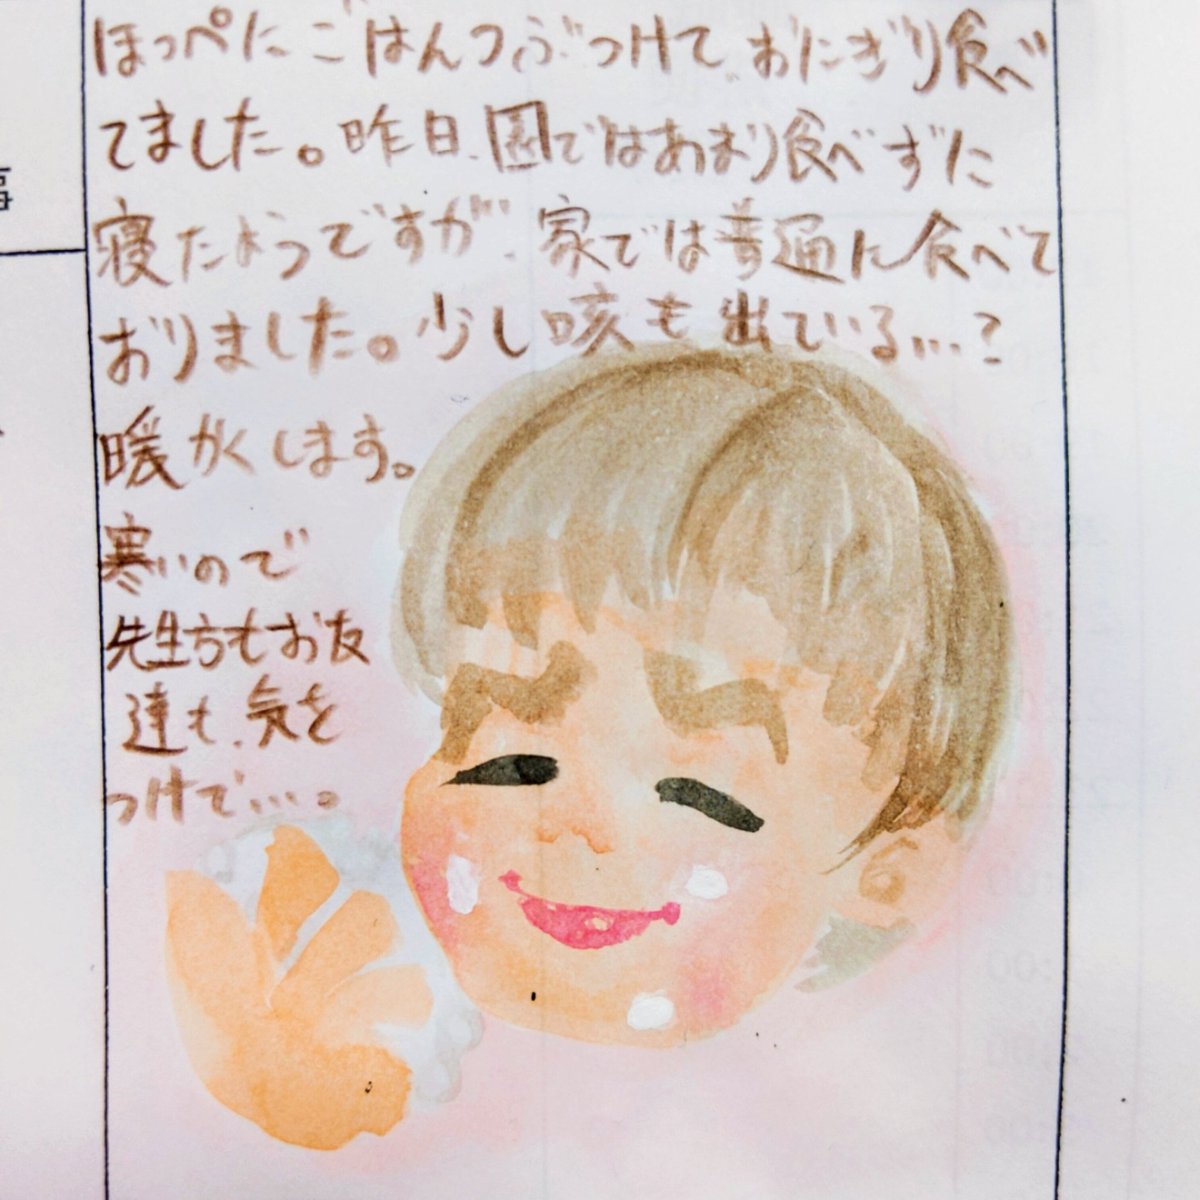 ほっぺにごはんつぶつけて、おにぎり食べ
てました。昨日、園ではあまり食べずに
寝たようですが、家では普通に食べて
おりました。少し咳も出ている…?
暖かくします。
寒いので
先生方もお友
達も、気を
つけて…。